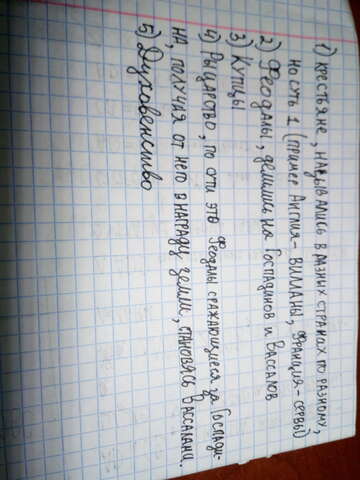 1) крестьяне, назывались в разных странах по разному,
но суть 1 (пример Англия - Вилланы, Франция - сервы)
2) Феодалы, делились на Господинов и Вассалов
3) Купцы
4) Рыцарство, по сути это Феодалы сражающиеся за Господи-
на, получая от него в награду земли, становясь Вассалами.
5) Духовенство